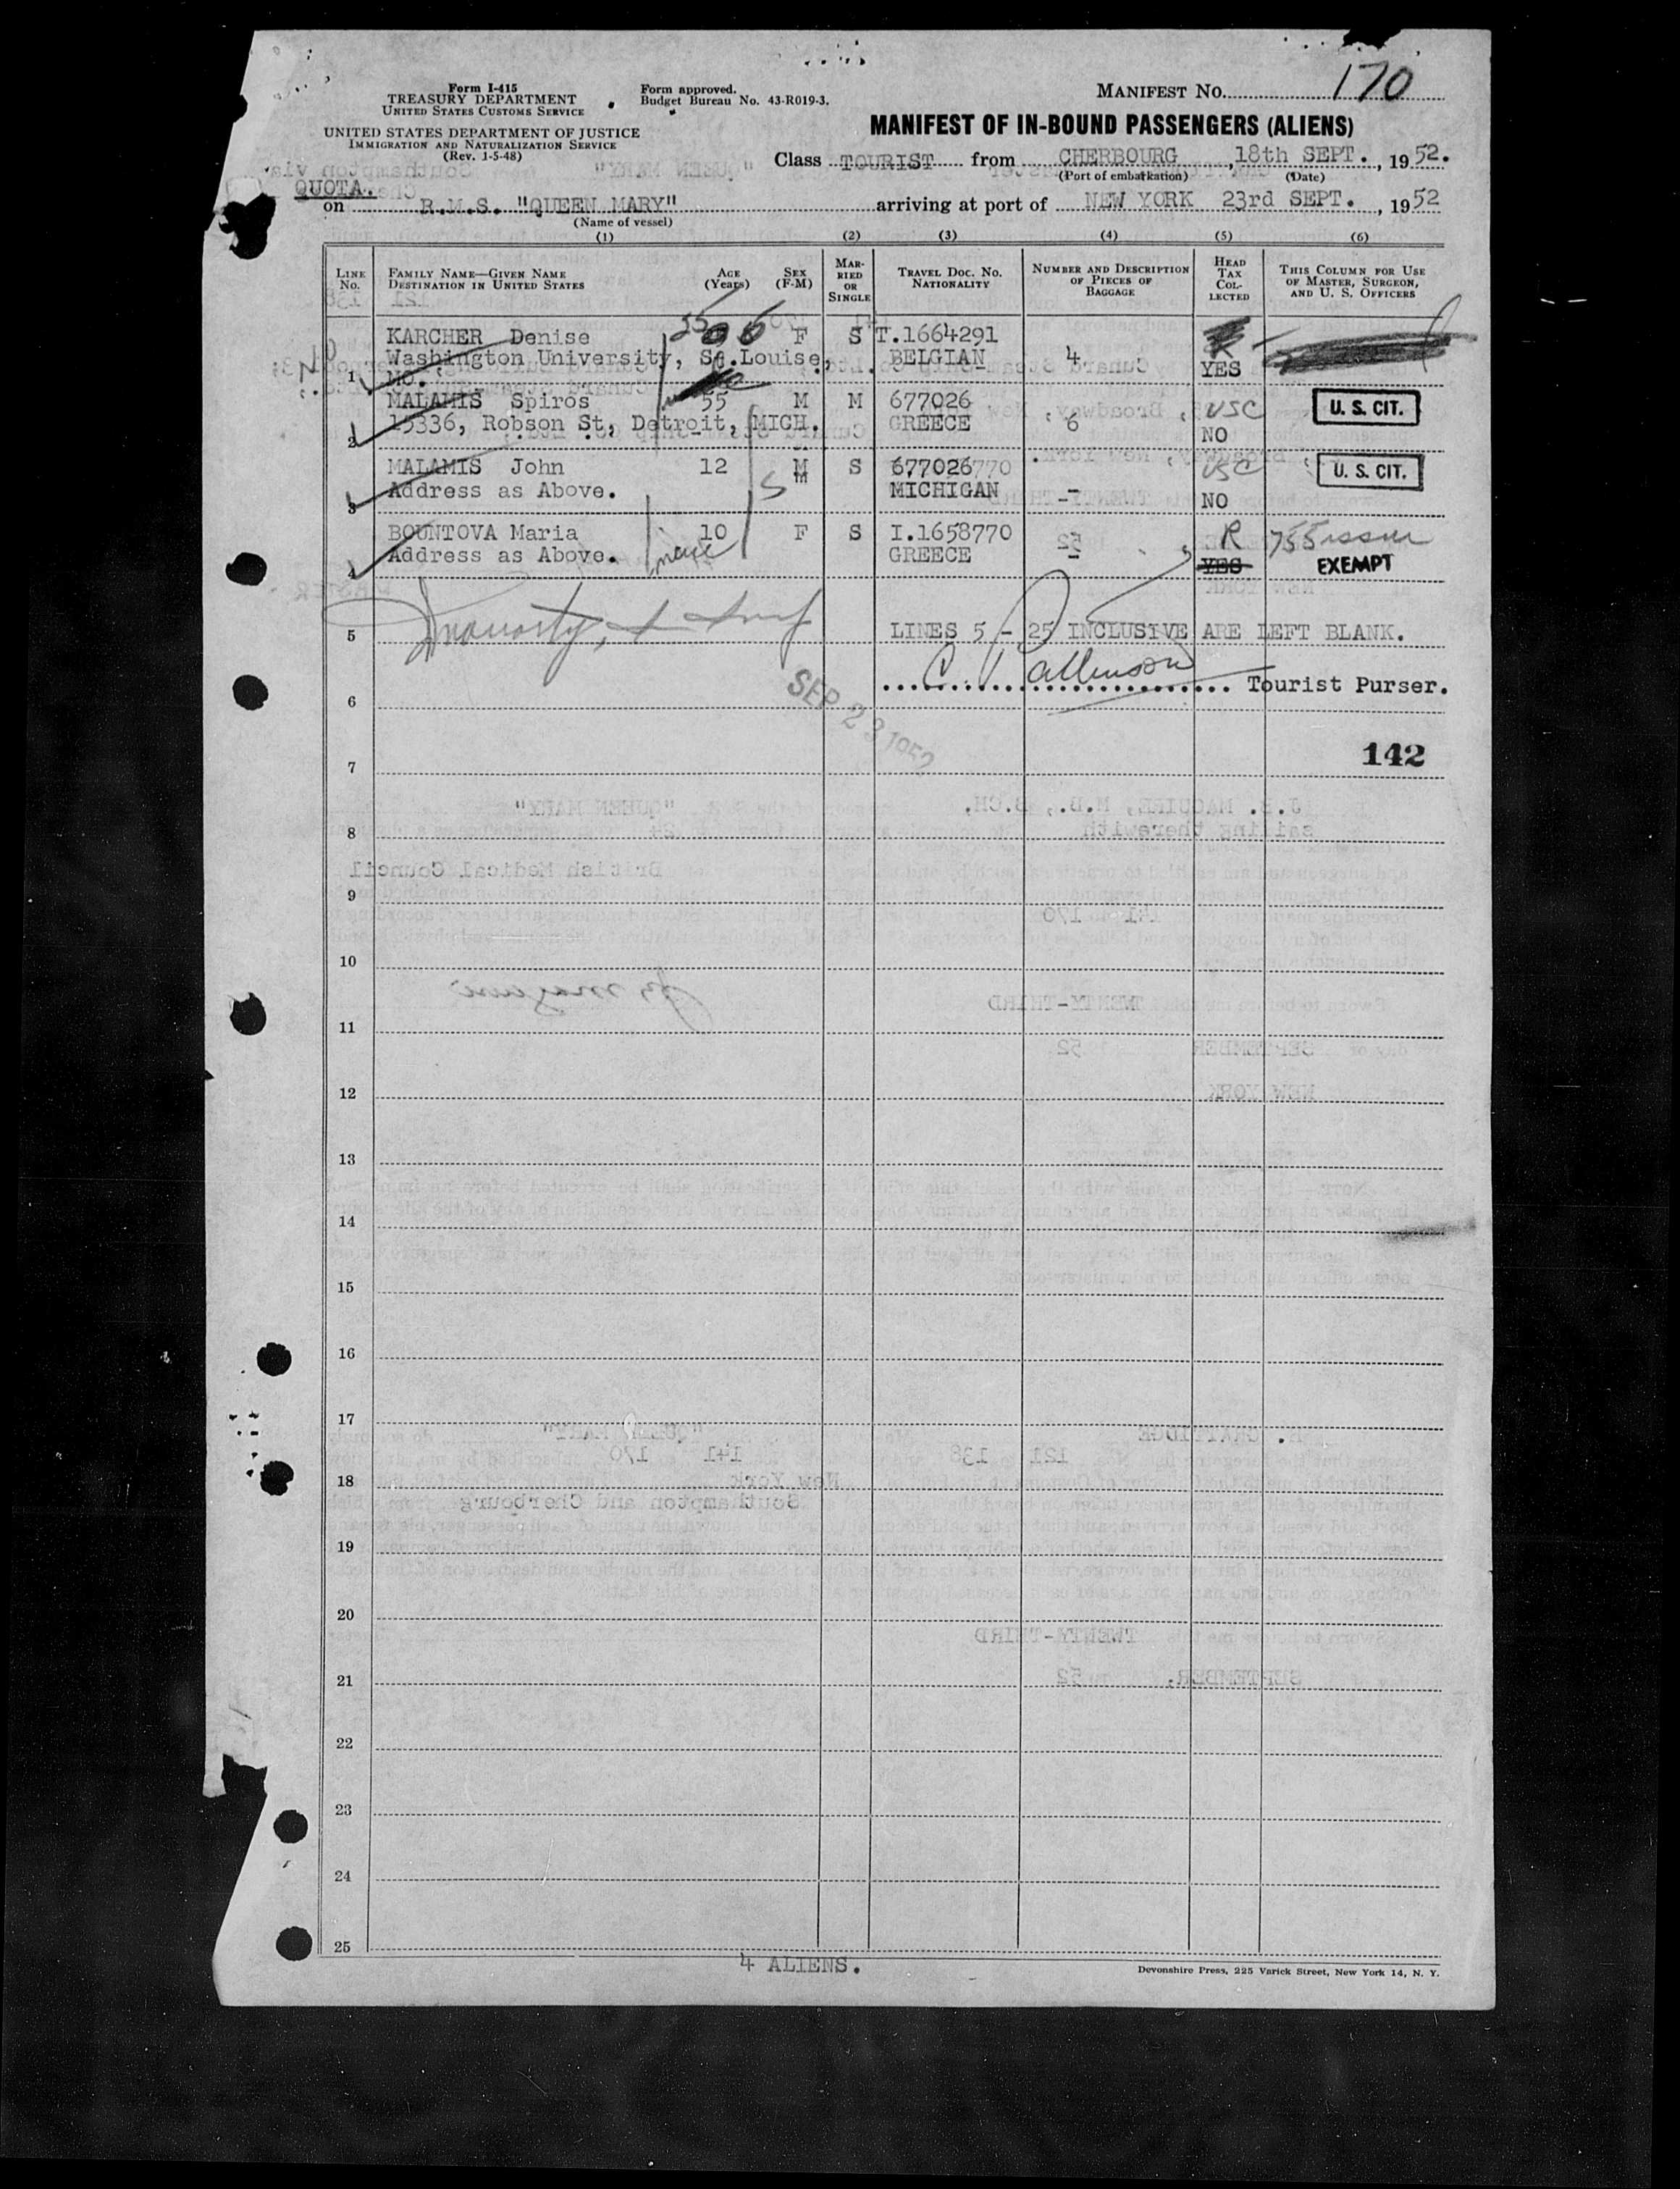 Form I-415
TREASURY DEPARTMENT
UNITED STATES CUSTOMS SERVICE
Form approved.
Budget Bureau No. 43-R019-3.
MANIFEST NO. 170
UNITED STATES DEPARTMENT OF JUSTICE
IMMIGRATION AND NATURALIZATION SERVICE
(Rev. 1-5-48)
MANIFEST OF IN-BOUND PASSENGERS (ALIENS)
Class TOURIST from CHERBOURG, 18th SEPT., 1952.
(Port of embarkation) (Date)
QUOTA.
on R.M.S. "QUEEN MARY" arriving at port of NEW YORK 23rd SEPT., 1952
(Name of vessel)
(1) (2) (3) (4) (5) (6)
LINE No. FAMILY NAME—GIVEN NAME DESTINATION IN UNITED STATES AGE (Years) SEX (F-M) MARRIED OR SINGLE TRAVEL DOC. NO. NATIONALITY NUMBER AND DESCRIPTION OF PIECES OF BAGGAGE HEAD TAX COLLECTED THIS COLUMN FOR USE OF MASTER, SURGEON, AND U. S. OFFICERS
KARCHER Denise F S T.1664291
Washington University, St.Louise, BELGIAN 4
1 MO. YES
MALAMIS Spiros 55 M M 677026 USC U. S. CIT.
15336, Robson St, Detroit, MICH. GREECE 6
2 NO
MALAMIS John 12 M S 677026 USC U. S. CIT.
Address as Above. S MICHIGAN -
3 NO
BOUNTOVA Maria 10 F S I.1658770 R 755 issue
Address as Above. GREECE - YES EXEMPT
4
5 LINES 5 - 25 INCLUSIVE ARE LEFT BLANK.
Tourist Purser.
SEP 23 1952
6
142
7
8
9
10
11
12
13
14
15
16
17
18
19
20
21
22
23
24
25
4 ALIENS.
Devonshire Press, 225 Varick Street, New York 14, N. Y.